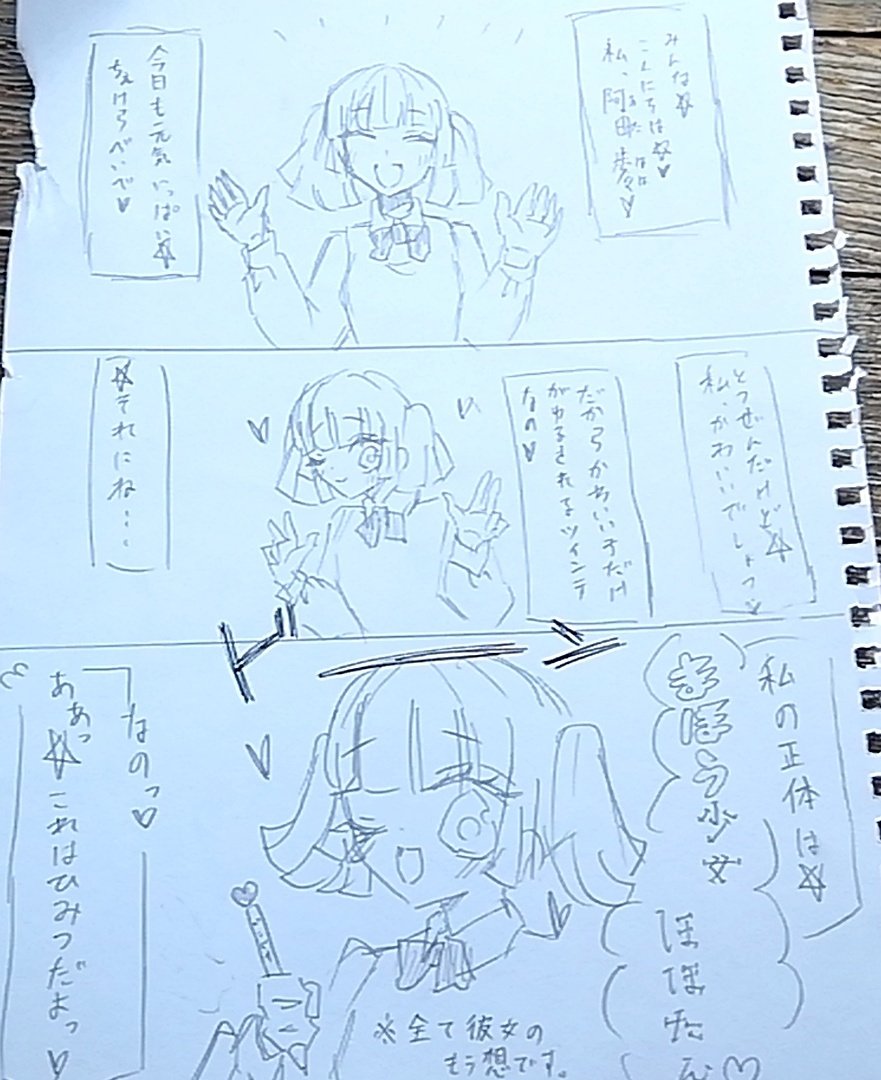 みんな☆
こんにちは☆♥
私、阿田歩々♥
あだ ほほ
今日も元気いっぱい☆
ちぇけらべいべ♥
とつぜんだけど☆
私、かわいいでしょっ♥
だからかわいい子だけ
がゆるされるツインテ
なの♥
☆それにね…
私の正体は☆
まほう少女
ほほたん♡
ドーン
なのっ♥
ああっ☆これはひみつだよっ♥
※全て彼女の
もう想です。